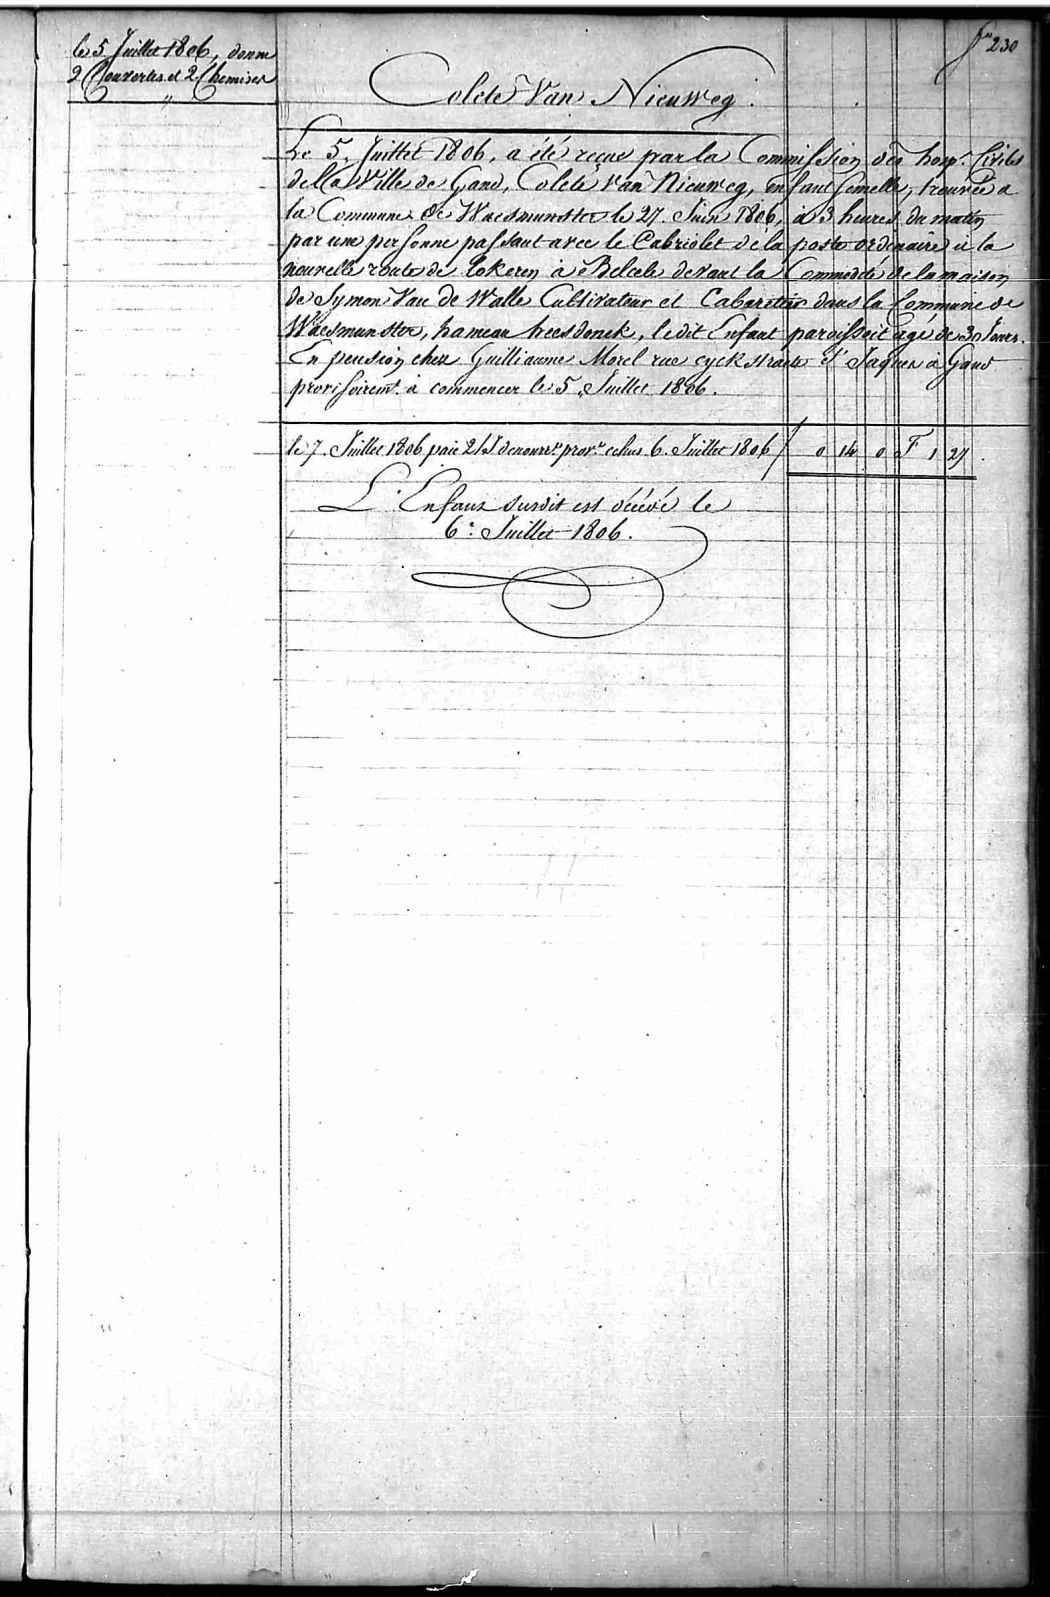 fo 230
le 5 Juillet 1806, donné
2 Couvertes et 2 Chemises
"
Colete Van Nieuweg.
Le 5. Juillet 1806, a été reçue par la Commission des hosp. Civils
de la Ville de Gand, Colete Van Nieuweg, enfant femelle, trouvée a
la Commune de Waesmunster le 27. Juin 1806, à 3 heures du matin
par une personne passant avec le Cabriolet de la poste ordinaire à la
nouvelle route de Lokeren à Belcele devant la Commodité de la maison
de Symon Van de Walle Cultivateur et Cabaretier dans la Commune de
Waesmunster, hameau heesdonck, le dit Enfant paroissoit agé de 30 Jours.
En pension chez Guilliaume Morel rue cyckstraete St Jaques à Gand
provisoiremt. à commencer le 5. Juillet 1806.
le 7. Juillet 1806 paié 2 J de nourre. prove. echus 6. Juillet 1806 / 0 14 0 F 1 27.
L'Enfant susdit est décédé le
6e. Juillet 1806.